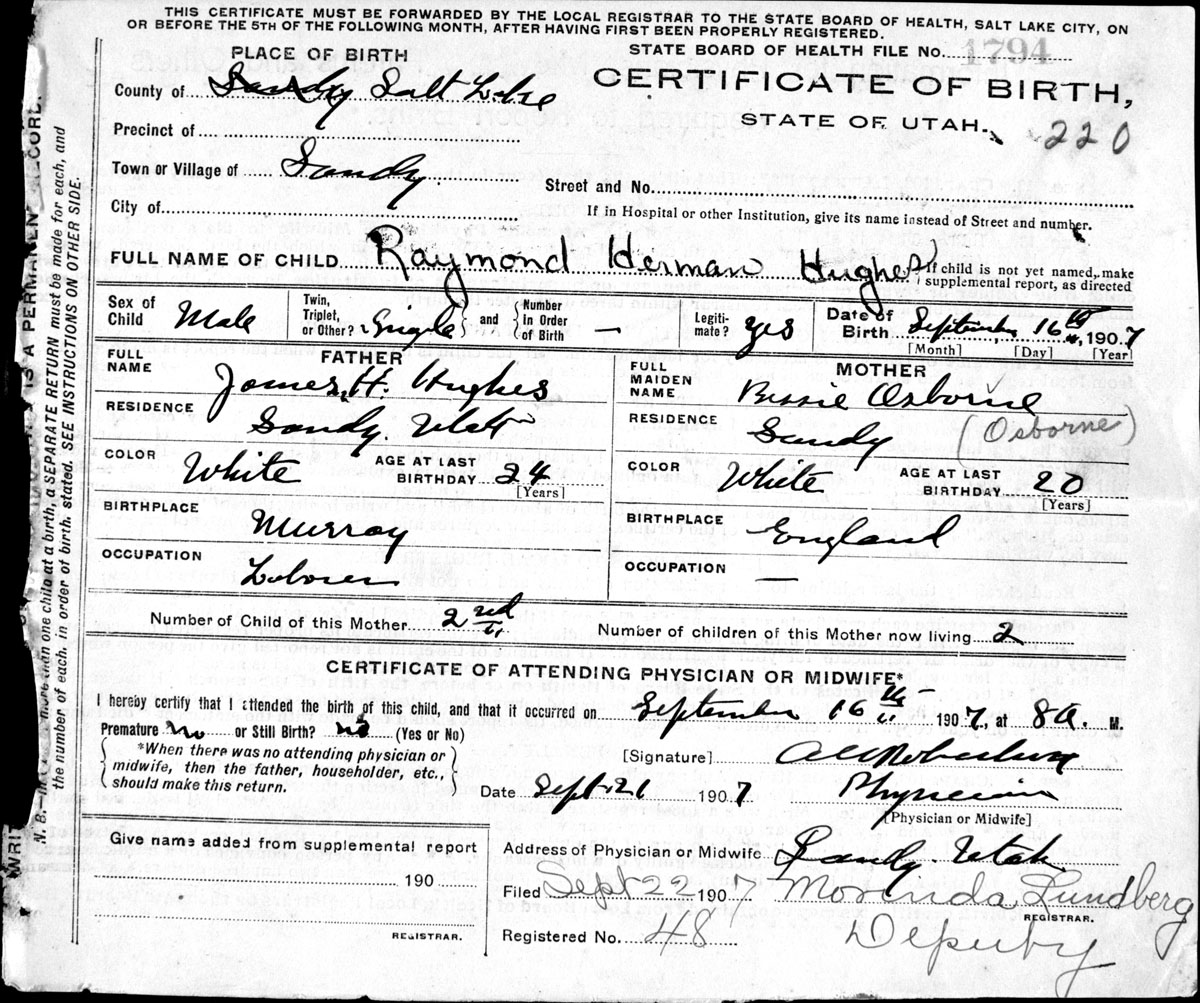 THIS CERTIFICATE MUST BE FORWARDED BY THE LOCAL REGISTRAR TO THE STATE BOARD OF HEALTH, SALT LAKE CITY, ON
OR BEFORE THE 5TH OF THE FOLLOWING MONTH, AFTER HAVING FIRST BEEN PROPERLY REGISTERED.
PLACE OF BIRTH
STATE BOARD OF HEALTH FILE No. 1794
County of Sandy Salt Lake
CERTIFICATE OF BIRTH,
STATE OF UTAH.
220
Precinct of
Town or Village of Sandy
Street and No.
City of
If in Hospital or other Institution, give its name instead of Street and number.
FULL NAME OF CHILD Raymond Herman Hughes
If child is not yet named, make
supplemental report, as directed
Sex of
Child Male
Twin,
Triplet,
or Other? Single
and
Number
In Order
of Birth —
Legiti-
mate? yes
Date of
Birth September 16th, 1907
[Month] [Day] [Year]
FATHER
FULL
NAME James H. Hughes
RESIDENCE Sandy. Utah
COLOR White AGE AT LAST
BIRTHDAY 24
[Years]
BIRTHPLACE Murray
OCCUPATION Laborer
MOTHER
FULL
MAIDEN
NAME Bessie Osborne
RESIDENCE Sandy (Osborne)
COLOR White AGE AT LAST
BIRTHDAY 20
[Years]
BIRTHPLACE England
OCCUPATION —
Number of Child of this Mother 2nd
Number of children of this Mother now living 2
CERTIFICATE OF ATTENDING PHYSICIAN OR MIDWIFE*
I hereby certify that I attended the birth of this child, and that it occurred on September 16th 1907, at 8 a. M.
Premature no or Still Birth? no (Yes or No)
*When there was no attending physician or
midwife, then the father, householder, etc.,
should make this return.
[Signature]
Date Sept 21 1907 Physician
[Physician or Midwife]
Give name added from supplemental report
190
REGISTRAR.
Address of Physician or Midwife Sandy. Utah
Filed Sept 22 1907 Lundberg
REGISTRAR.
Registered No. 48 Deputy
IS A PERMANENT RECORD.
N. B.— more than one child at a birth, a SEPARATE RETURN must be made for each, and
the number of each, in order of birth, stated. SEE INSTRUCTIONS ON OTHER SIDE.